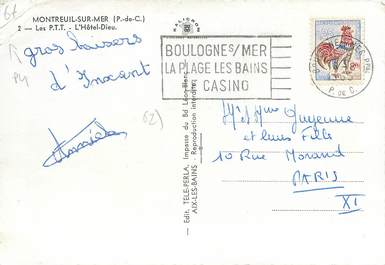 MONTREUIL-SUR-MER (P.-de-C.)
2 — Les P.T.T. - L'Hôtel-Dieu.
gros baisers
d'
BOULOGNE S/MER
LA PLAGE LES BAINS
CASINO
P. DE C.
62)
Mr Mme Guyenne
et leurs Fille
10 Rue Morand
PARIS
XI
— Edit. TELE-PERLA, Impasse du Bd Léon-Blanc
AIX-LES-BAINS Reproduction interdite